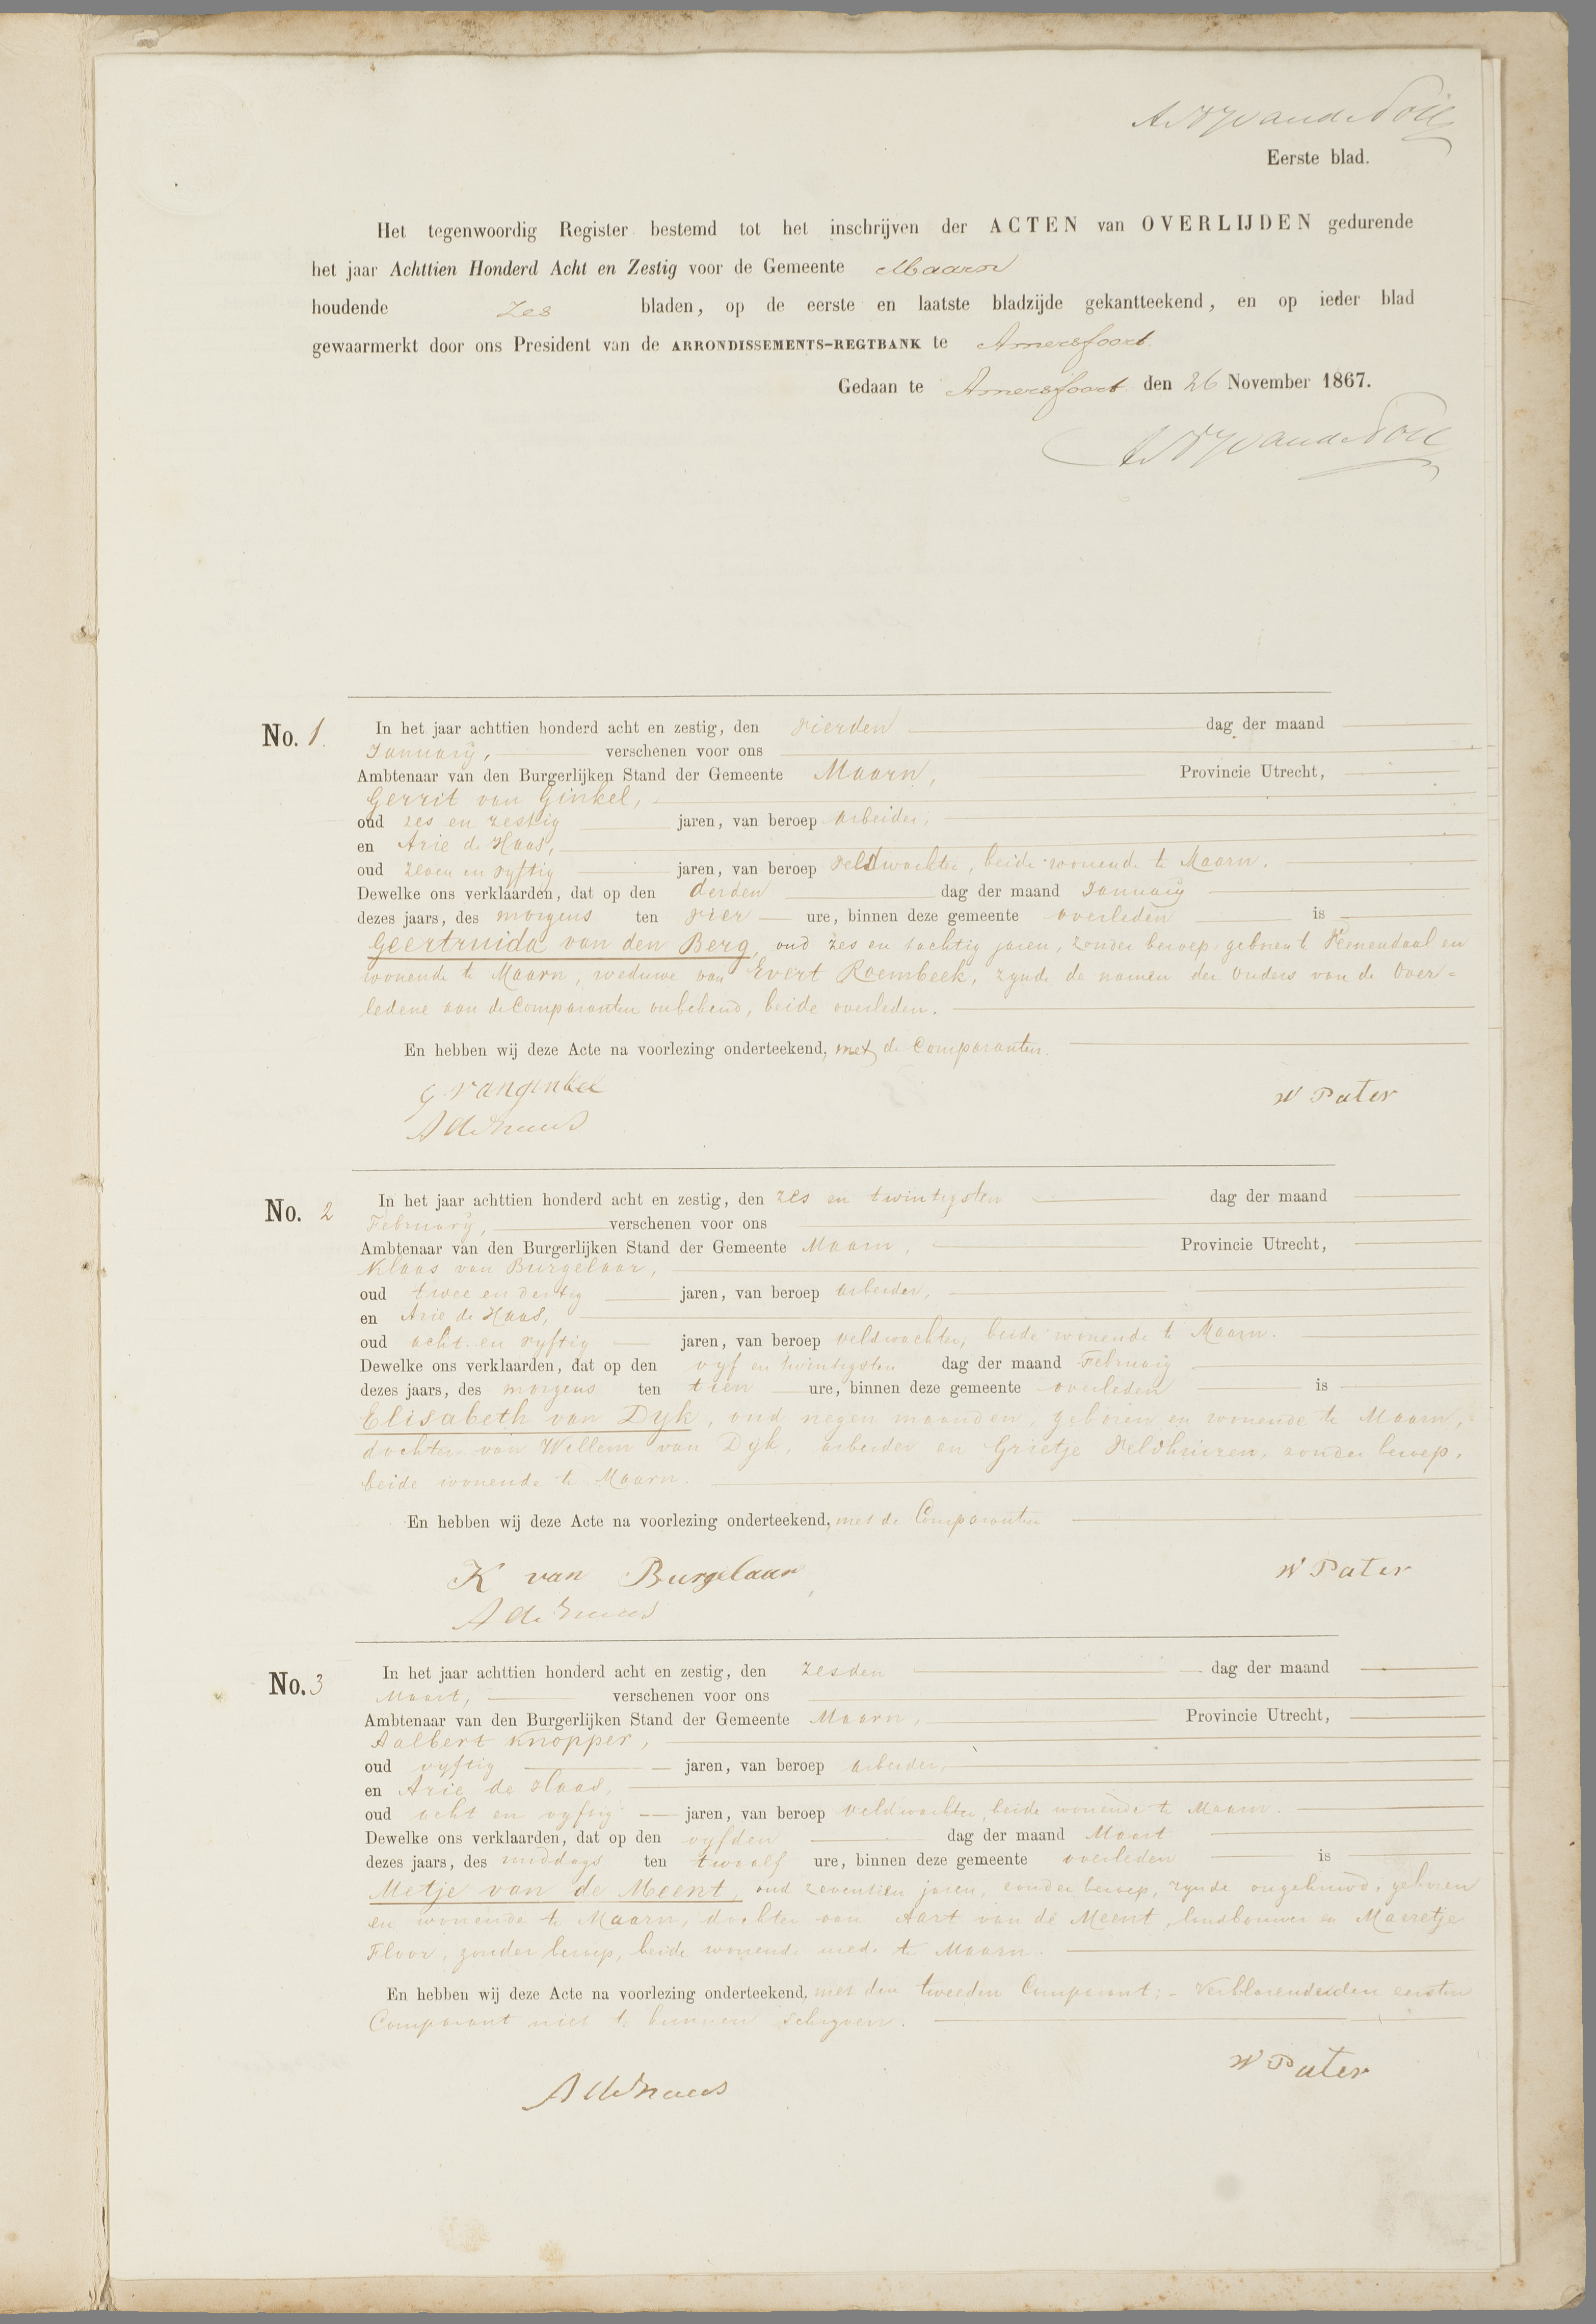 Eerste blad.
Het tegenwoordig Register bestemd tot het inschrijven der ACTEN van OVERLIJDEN gedurende
het jaar Achttien Honderd Acht en Zestig voor de Gemeente Maarn
houdende Zes bladen, op de eerste en laatste bladzijde gekantteekend, en op ieder blad
gewaarmerkt door ons President van de ARRONDISSEMENTS-REGTBANK te Amersfoort
Gedaan te Amersfoort den 26 November 1867.
No. 1. In het jaar achttien honderd acht en zestig, den vierden dag der maand
January, verschenen voor ons
Ambtenaar van den Burgerlijken Stand der Gemeente Maarn, Provincie Utrecht,
Gerrit van Ginkel,
oud zes en zestig jaren, van beroep arbeider,
en Arie de Haas,
oud zeven en vyftig jaren, van beroep veldwachter, beide wonende te Maarn.
Dewelke ons verklaarden, dat op den derden dag der maand January
dezes jaars, des morgens ten vier ure, binnen deze gemeente overleden is
Geertruida van den Berg, oud zes en tachtig jaren, zonder beroep, geboren te Veenendaal en
wonende te Maarn, weduwe van Evert Roembeek, zynde de namen der Ouders van de Over=
ledene aan de Comparanten onbekend, beide overleden.
En hebben wij deze Acte na voorlezing onderteekend, met de Comparanten.
G van ginkel
W Pater
A de Haas
No. 2 In het jaar achttien honderd acht en zestig, den zes en twintigsten dag der maand
February, verschenen voor ons
Ambtenaar van den Burgerlijken Stand der Gemeente Maarn, Provincie Utrecht,
Klaas van Burgelaar,
oud twee en dertig jaren, van beroep arbeider,
en Arie de Haas,
oud acht en vyftig jaren, van beroep veldwachter, beide wonende te Maarn.
Dewelke ons verklaarden, dat op den vyf en twintigsten dag der maand February
dezes jaars, des morgens ten tien ure, binnen deze gemeente overleden is
Elisabeth van Dyk, oud negen maanden, geboren en wonende te Maarn,
dochter van Willem van Dyk, arbeider en Grietje Veldhuizen, zonder beroep,
beide wonende te Maarn.
En hebben wij deze Acte na voorlezing onderteekend, met de Comparanten
K van Burgelaar
W Pater
A de Haas
No. 3 In het jaar achttien honderd acht en zestig, den zesden dag der maand
Maart, verschenen voor ons
Ambtenaar van den Burgerlijken Stand der Gemeente Maarn, Provincie Utrecht,
Aalbert Knopper,
oud vyftig jaren, van beroep arbeider,
en Arie de Haas,
oud acht en vyftig jaren, van beroep veldwachter, beide wonende te Maarn.
Dewelke ons verklaarden, dat op den vyfden dag der maand Maart
dezes jaars, des middags ten twaalf ure, binnen deze gemeente overleden is
Metje van de Meent, oud zeventien jaren, zonder beroep, zynde ongehuwd, geboren
en wonende te Maarn, dochter van Aart van de Meent, landbouwer en Marretje
Floor, zonder beroep, beide wonende mede te Maarn.
En hebben wij deze Acte na voorlezing onderteekend, met den tweeden Comparant; - verklarende den eersten
Comparant niet te kunnen schryven.
W Pater
A de Haas